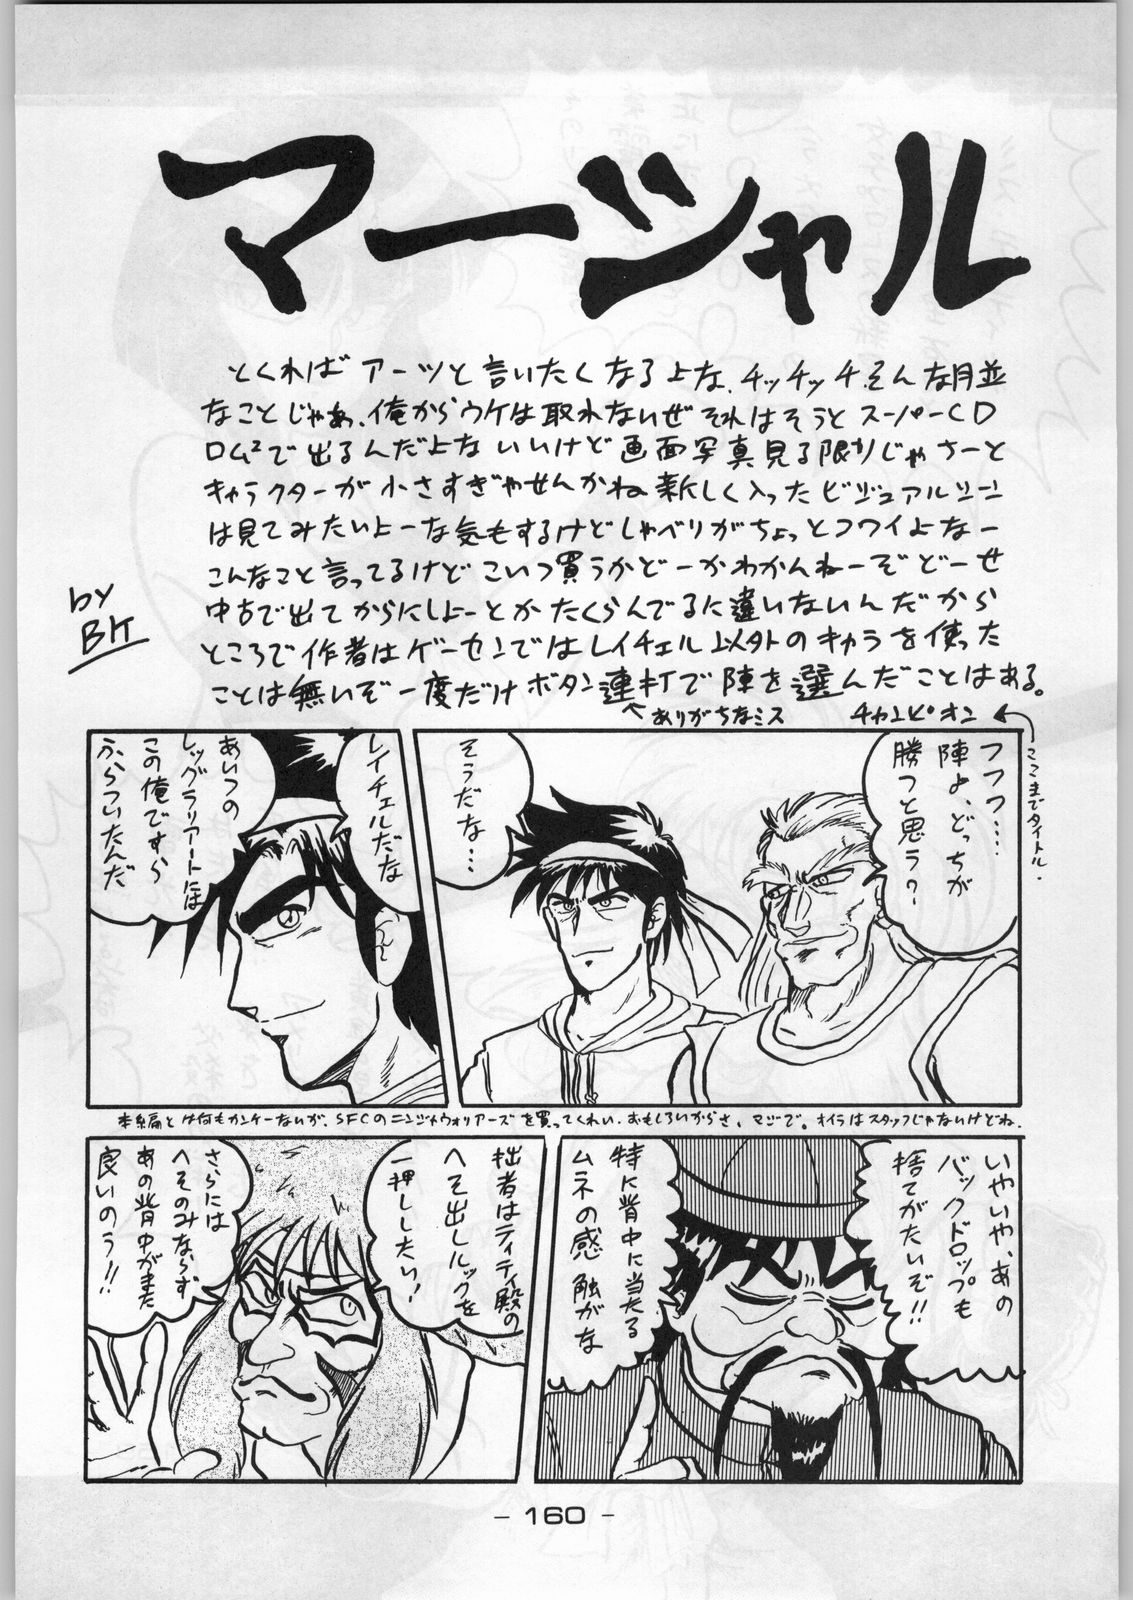 マーシャル
とくればアーツと言いたくなるよな、チッチッチそんな月並
なことじゃあ、俺からウケは取れないぜそれはそうとスーパーCD
ROM²で出るんだよないいけど画面写真見る限りじゃさーと
キャラクターが小さすぎやせんかね新しく入ったビジュアルシーン
は見てみたいよーな気もするけどしゃべりがちょっとコワイよなー
こんなこと言ってるけどこいつ買うかどーかわかんねーぞどーせ
中古で出てからにしよーとかたくらんでるに違いないんだから
ところで作者はゲーセンではレイチェル以外のキャラを使った
ことは無いぞ一度だけボタン連打で陣を選んだことはある。
ありがちなミス
チャンピオン
ここまでタイトル.
by
BK
フフフ…
陣よ、どっちが
勝つと思う?
そうだな…
レイチェルだな
あいつの
レッグラリアートには
この俺ですら
ふらついたんだ
本編とは何もカンケーないが、SFCのニンジャウォリアーズを買ってくれい.おもしろいからさ、マジで。オイラはスタッフじゃないけどね.
いやいや、あの
バックドロップも
捨てがたいぞ!!
特に背中に当たる
ムネの感触がな
拙者はティティ殿の
へそ出しルックを
一押ししたい!
さらには
へそのみならず
あの背中がまた
良いのう!!
- 160 -